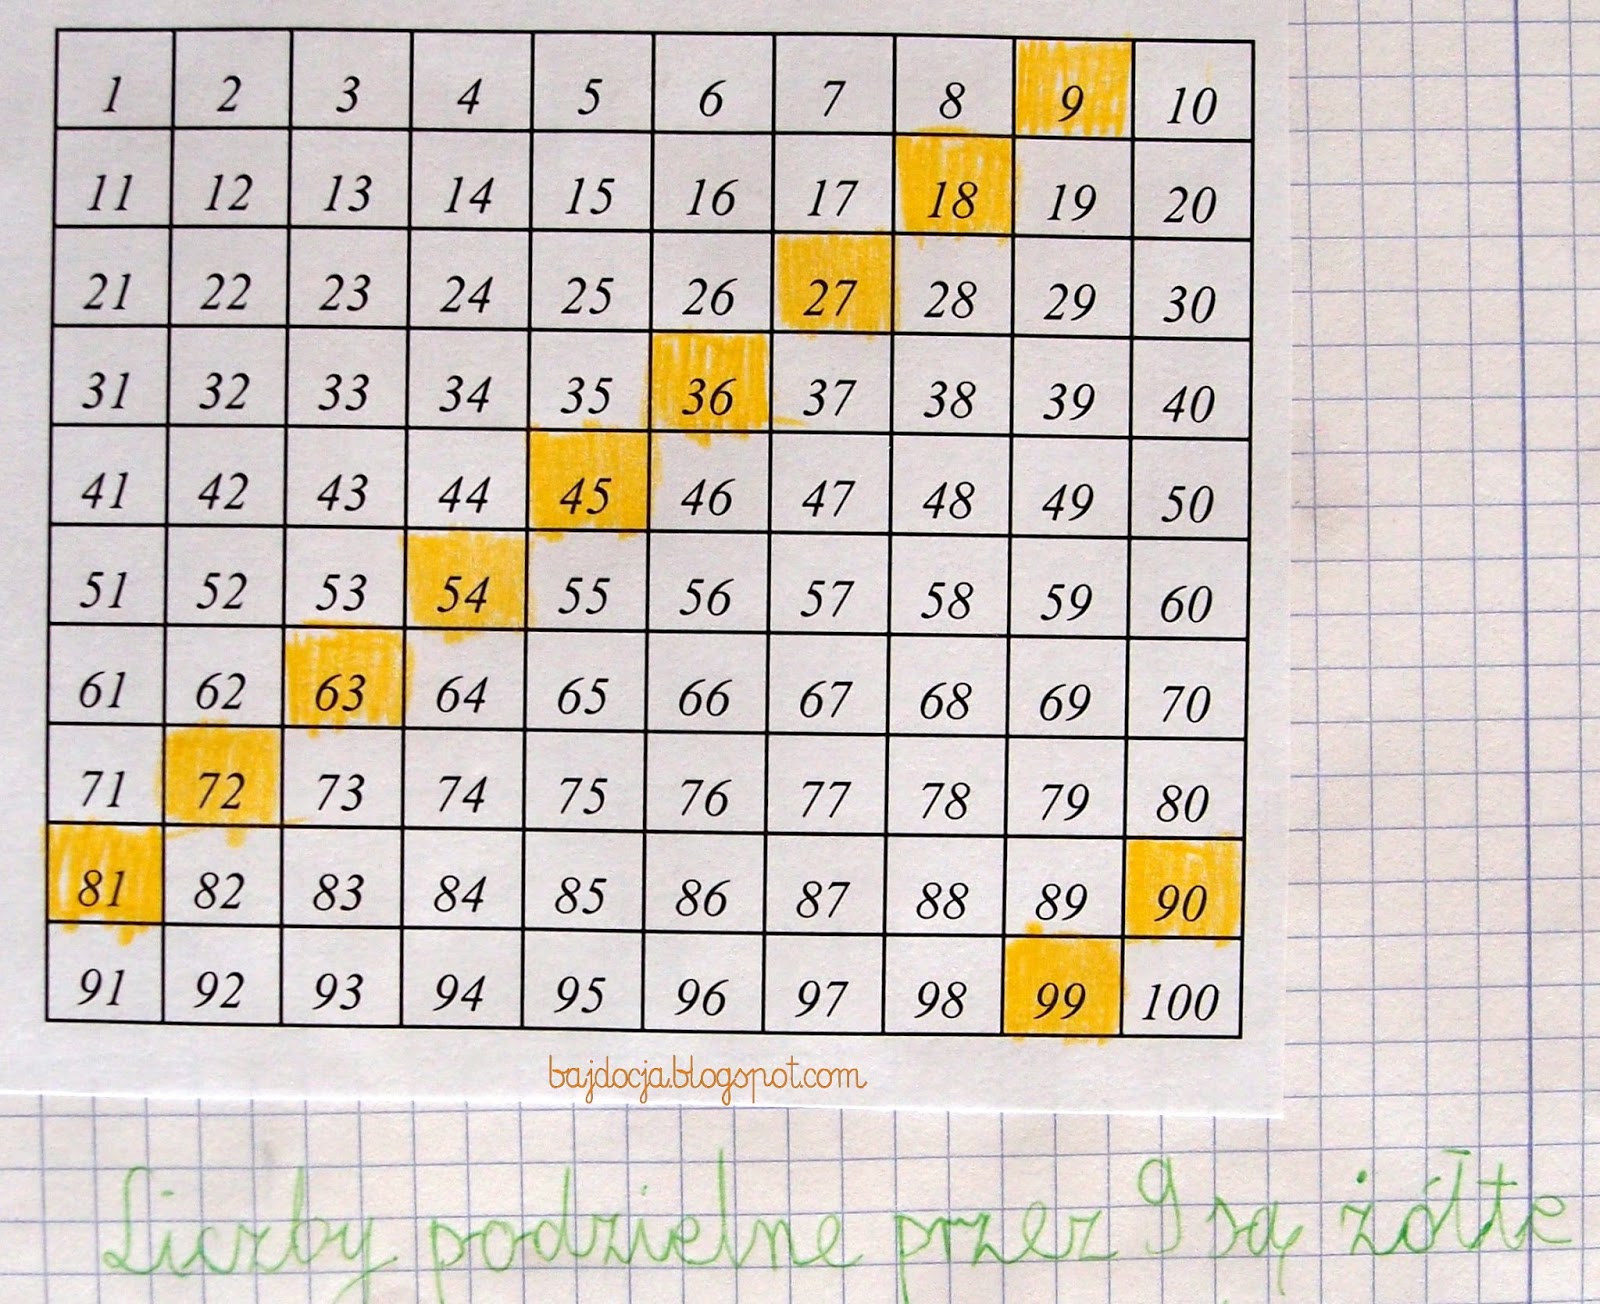 1 2 3 4 5 6 7 8 9 10
11 12 13 14 15 16 17 18 19 20
21 22 23 24 25 26 27 28 29 30
31 32 33 34 35 36 37 38 39 40
41 42 43 44 45 46 47 48 49 50
51 52 53 54 55 56 57 58 59 60
61 62 63 64 65 66 67 68 69 70
71 72 73 74 75 76 77 78 79 80
81 82 83 84 85 86 87 88 89 90
91 92 93 94 95 96 97 98 99 100
bajdocja.blogspot.com
Liczby podzielne przez 9 są żółte